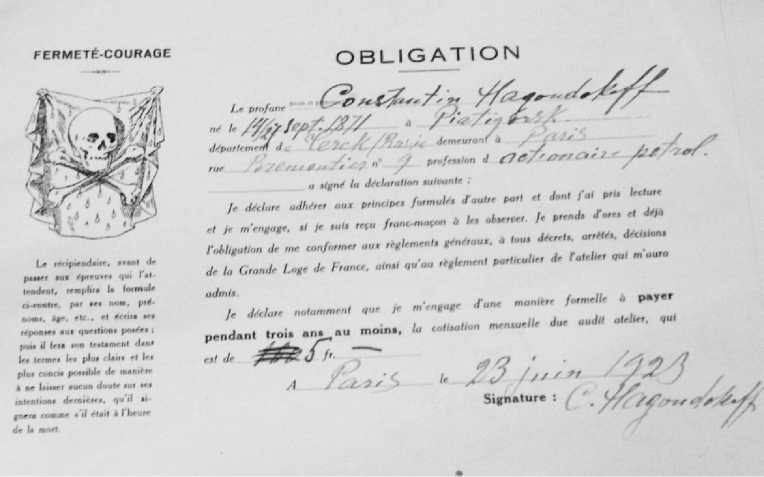 FERMETÉ-COURAGE
Le récipiendaire, avant de
passer aux épreuves qui l'at-
tendent, remplira la formule
ci-contre, par ses nom, pré-
noms, âge, etc., et écrira ses
réponses aux questions posées ;
puis il fera son testament dans
les termes les plus clairs et les
plus concis possible de manière
à ne laisser aucun doute sur ses
intentions dernières, qu'il si-
gnera comme s'il était à l'heure
de la mort.
OBLIGATION
Le profane Constantin Hagondokoff
né le 14/27 sept. 1871 à Piatigorsk
département de Terck/Russie demeurant à Paris
rue Bremontier n° 9 profession d actionaire petrol.
a signé la déclaration suivante :
Je déclare adhérer aux principes formulés d'autre part et dont j'ai pris lecture
et je m'engage, si je suis reçu franc-maçon à les observer. Je prends d'ores et déjà
l'obligation de me conformer aux règlements généraux, à tous décrets, arrêtés, décisions
de la Grande Loge de France, ainsi qu'au règlement particulier de l'atelier qui m'aura
admis.
Je déclare notamment que je m'engage d'une manière formelle à payer
pendant trois ans au moins, la cotisation mensuelle due audit atelier, qui
est de 5 fr.
A Paris le 23 juin 1923
Signature : C. Hagondokoff